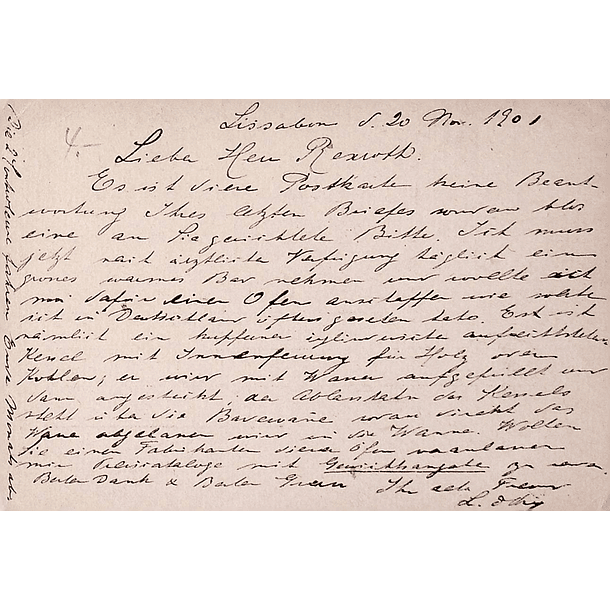 Lissabon d. 20 Nov. 1901
4.-
Lieber Herr Rexroth.
Es ist diese Postkarte keine Beant-
wortung Ihres letzten Briefes sondern blos
eine an Sie gerichtete Bitte. Ich muss
jetzt nach ärztlicher täglich ein
grosses warmes Bad nehmen und wollte
mir dafür einen Ofen anschaffen wie solche
ich in Deutschland öfters gesehen habe. Es ist
nämlich ein kupferner aufrechtstehender
Kessel mit Innenfeuerung für Holz oder
Kohlen; er wird mit Wasser aufgefüllt und
dann angesteckt, der des Kessels
steht über die Badewanne woran direkt das
abgelassen wird in die Wanne. Wollen
Sie einen Fabrikanten dieser Öfen veranlassen
mir Preiscataloge mit Gewichtsangabe zu
Besten Dank & Besten Gruss Ihr alter Freund
L.
Die fahren Ende Monats ab.